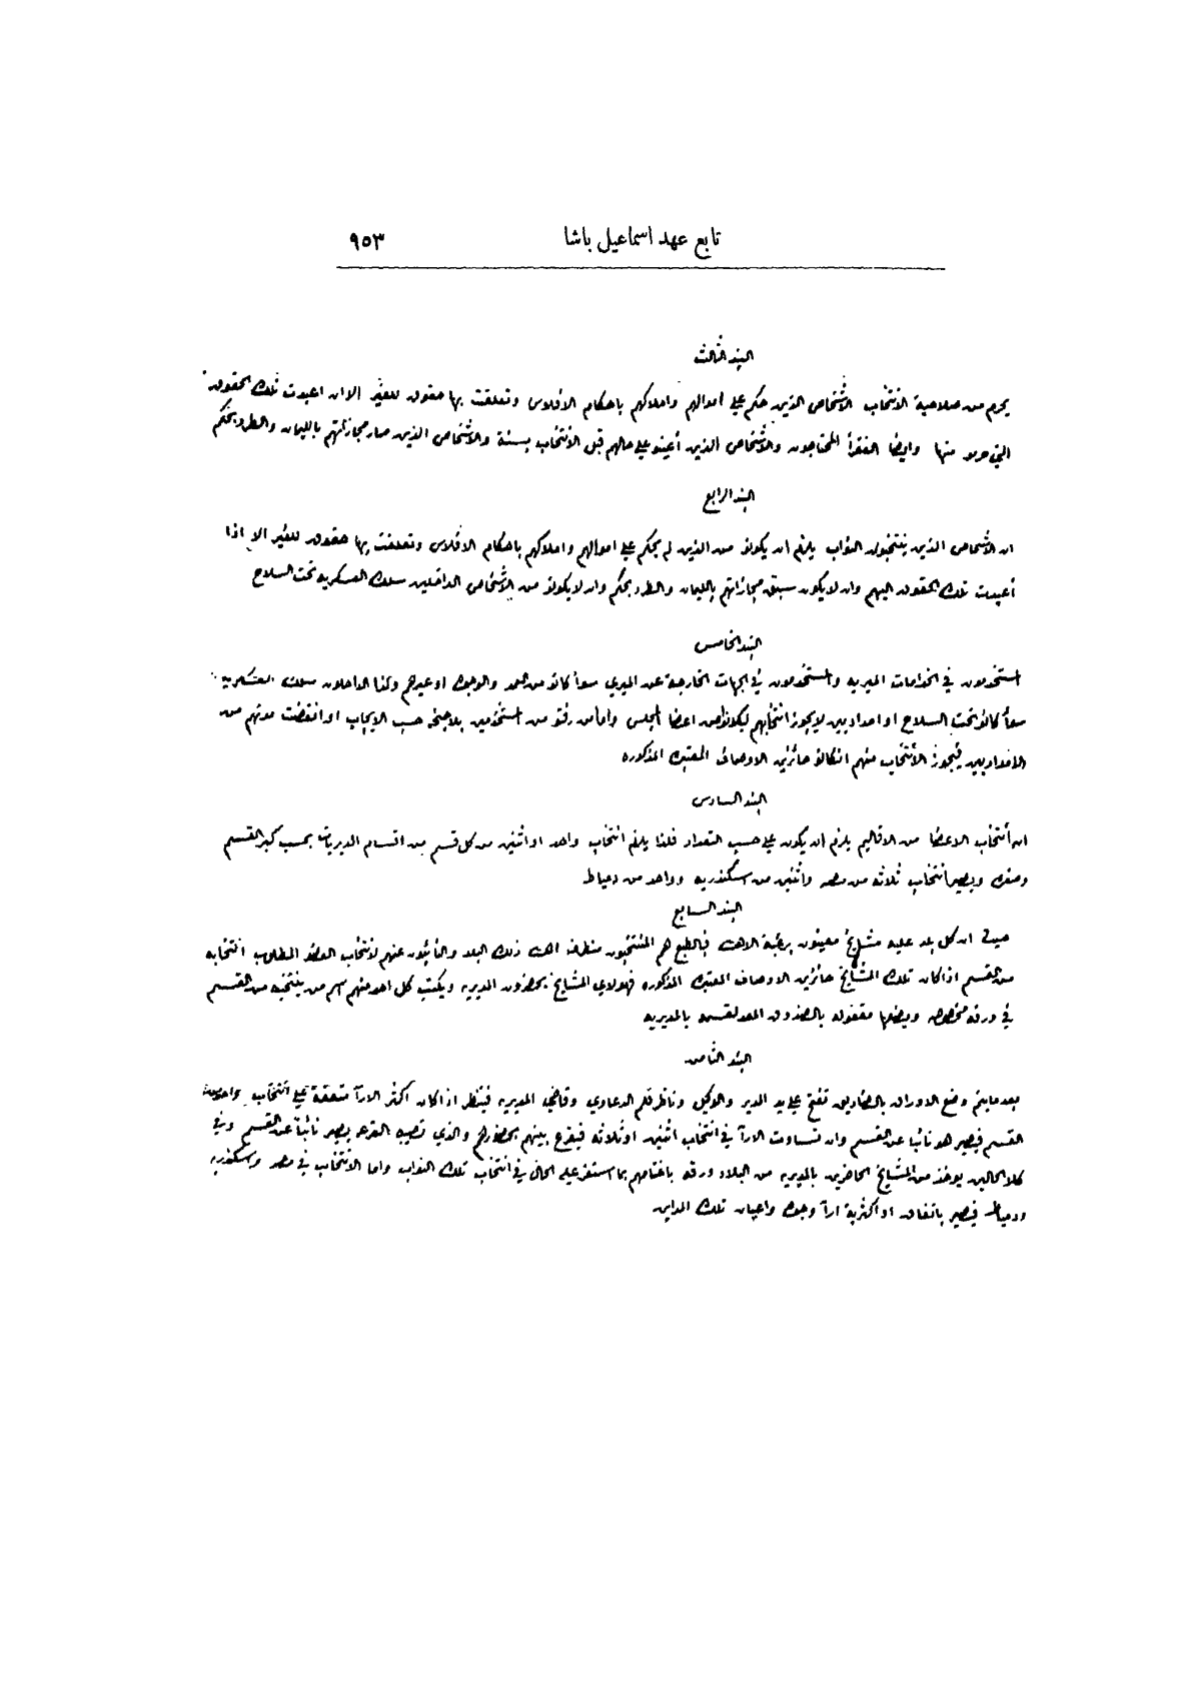 تابع عهد اسماعيل باشا ٩٥٣
البند الثالث
يحرم من صلاحية الانتخاب الأشخاص الذين حكم على اموالهم واملاكهم باحكام الافلاس وتعلقت بها حقوق للغير الا ان اعيدت تلك الحقوق
التي حرمو منها وايضا الفقرأ المحتاجون والأشخاص الذين أعينو على حالهم قبل الانتخاب بسنة والاشخاص الذين صار مجازاتهم بالليمان والطرد بحكم
البند الرابع
ان الأشخاص الذين ينتخبون النواب يلزم ان يكونو من الذين لم يحكم على اموالهم واملاكهم باحكام الافلاس وتعلقت بها حقوق للغير الا اذا
أعيدت تلك الحقوق اليهم وان لا يكون سبق مجازاتهم بالليمان والطرد بحكم وان لا يكونو من الأشخاص الداخلين سلك العسكرية تحت السلاح
البند الخامس
المستخدمون في الخدامات الميريه والمستخدمون في الجهات الخارجة عن الميري سوأ كانو من العمد والوجوه او غيرهم وكذا الداخلون سلك العسكريه
سوأ كانو تحت السلاح او امداديين لا يجوز انتخابهم ليكونو من اعضا المجلس واما من رفتو من المستخدمين بلا جنحة حسب الايجاب او انقضت مدتهم من
الامداديين فيجوز الانتخاب منهم ان كانو حائزين الاوصاف المعتبره المذكوره
البند السادس
ان أنتخاب الاعضا من الاقاليم يلزم ان يكون على حسب التعداد فلذا يلزم انتخاب واحد او اثنين من كل قسم من اقسام المديريات بحسب كبر القسم
وصغره ويصير أنتخاب ثلاثه من مصر واثنين من اسكندريه وواحد من دمياط
البند السابع
حيث ان كل بلد عليه مشايخ معينون برغبة الاهالي فبالطبع هم المنتخبون من طرف اهالي ذلك البلد والنائبون عنهم لانتخاب العضو المطلوب انتخابه
من القسم اذا كان تلك المشايخ حائزين الاوصاف المعتبره المذكوره فهولاي المشايخ يحضرون المديريه ويكتب كل احد منهم اسم من ينتخبه من القسم
في ورقه مخصوصه ويضعها مقفوله بالصندوق المعد لقسمه بالمديريه
البند الثامن
بعد ما يتم وضع الاوراق بالصناديق تفتح على يد المدير والوكيل وناظر قلم الدعاوي وقاضي المديريه فينظر اذا كان اكثر الارآ متفقة على انتخاب واحد من
القسم فيصير هو نائبا عن القسم وان تساوت الارآ في انتخاب اثنين او ثلاثه فيقرع بينهم بحضورهم والذي تصيبه القرعه يصير نائبا عن القسم وفي
كلا الحالين يوخذ من المشايخ الحاضرين بالمديريه من البلاد ورقه باختامهم بما استقر عليه الحال في انتخاب تلك النواب واما الانتخاب في مصر واسكندريه
ودمياط فيصير باتفاق او اكثرية ارآ وجوه واعيان تلك المداين